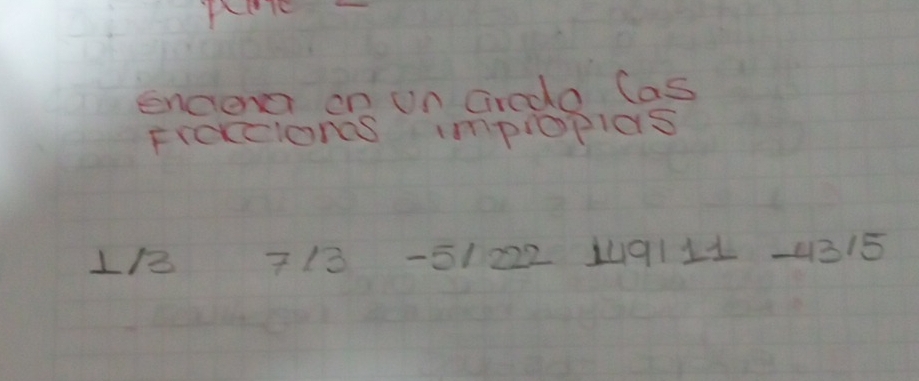 enciera en un circulo las
Fracciones impropias
1/3 7/3 -5/222 149/11 -43/5